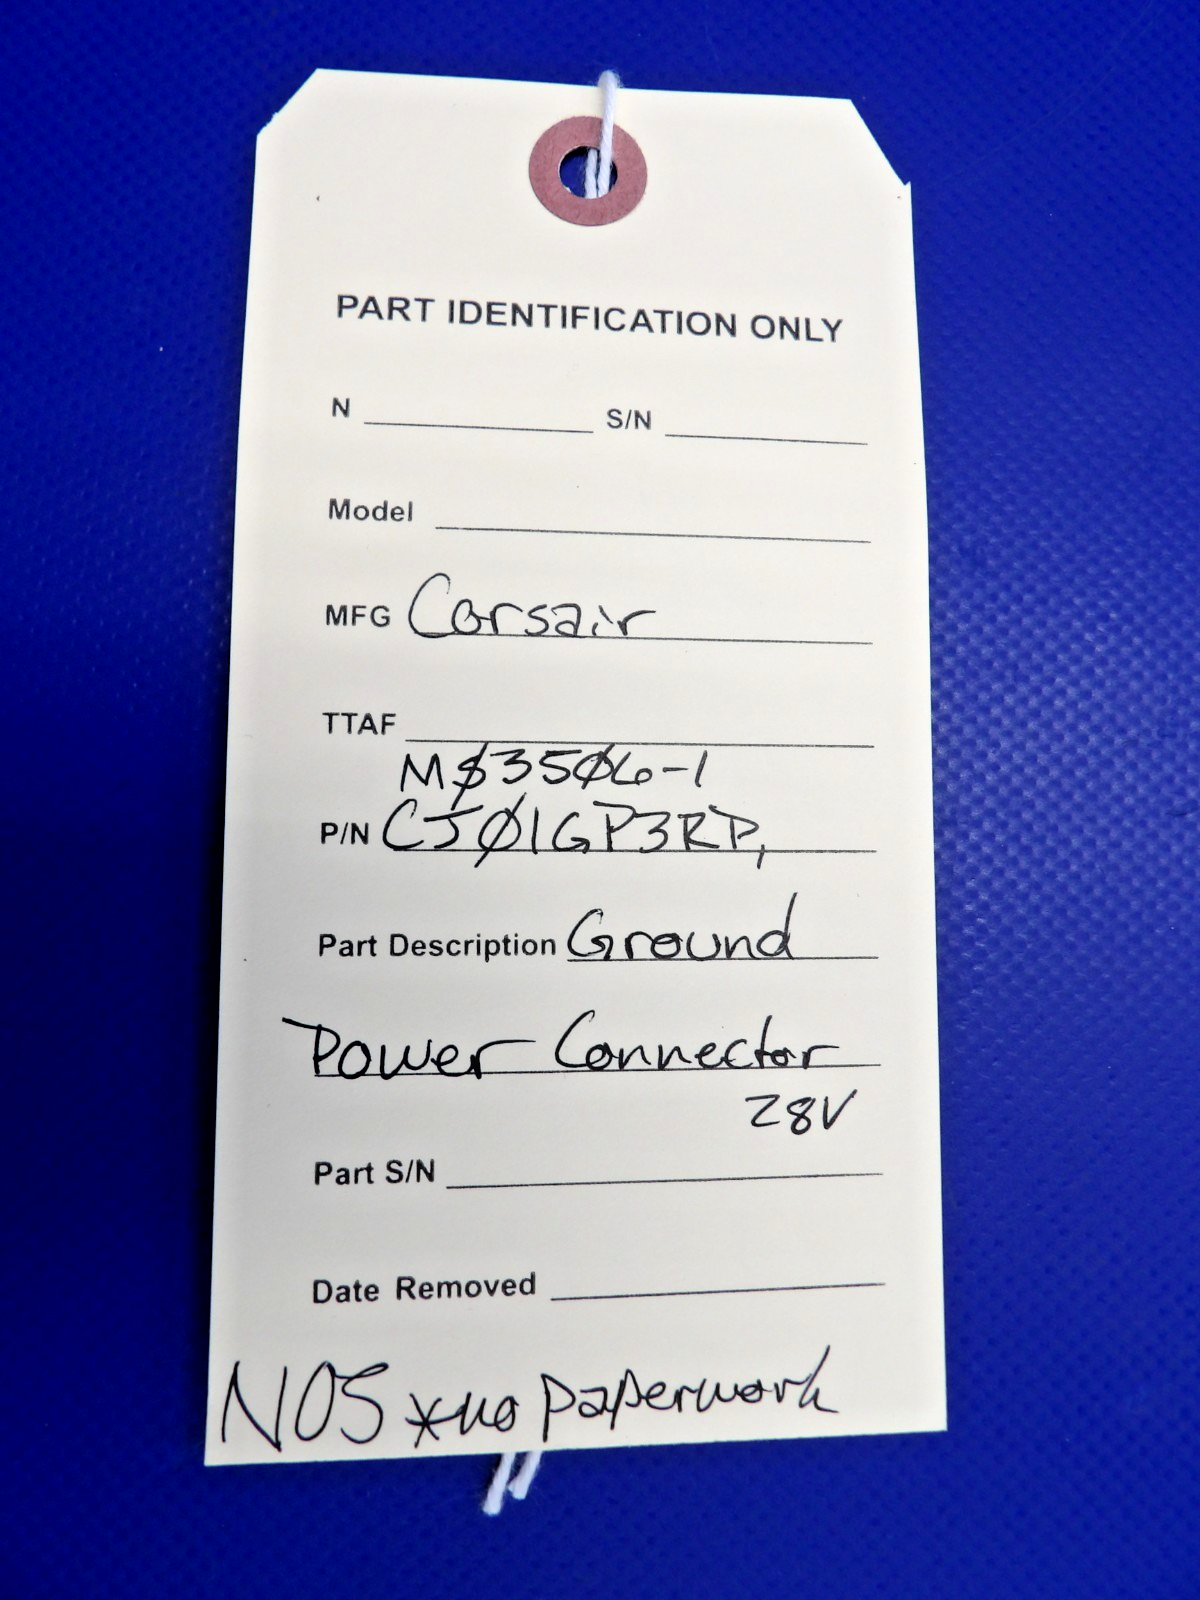 PART IDENTIFICATION ONLY
N S/N
Model
MFG Corsair
TTAF
MS3506-1
P/N CJ01GP3RP,
Part Description Ground
Power Connector
28V
Part S/N
Date Removed
NOS *no paperwork